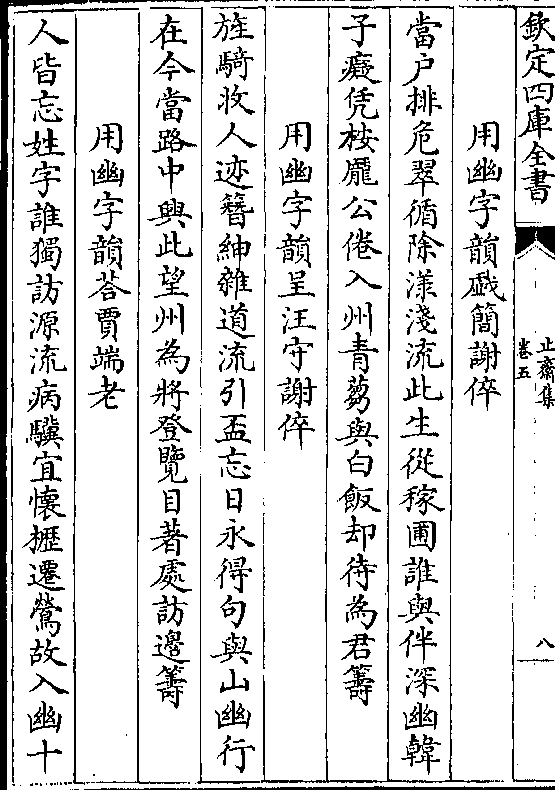 欽定四庫全書
止齋集
卷五
八
用幽字韻戲簡謝倅
當户排危翠循除漾淺流此生從稼圃誰與伴深幽韓
子癡凭桉龎公倦入州青蒭與白飯却待為君籌
用幽字韻呈汪守謝倅
旌騎收人迹簪紳雜道流引盃忘日永得句與山幽行
在今當路中興此望州為將登覽目著處訪邊籌
用幽字韻荅賈端老
人皆忘姓字誰獨訪源流病驥宜懷櫪遷鶯故入幽十